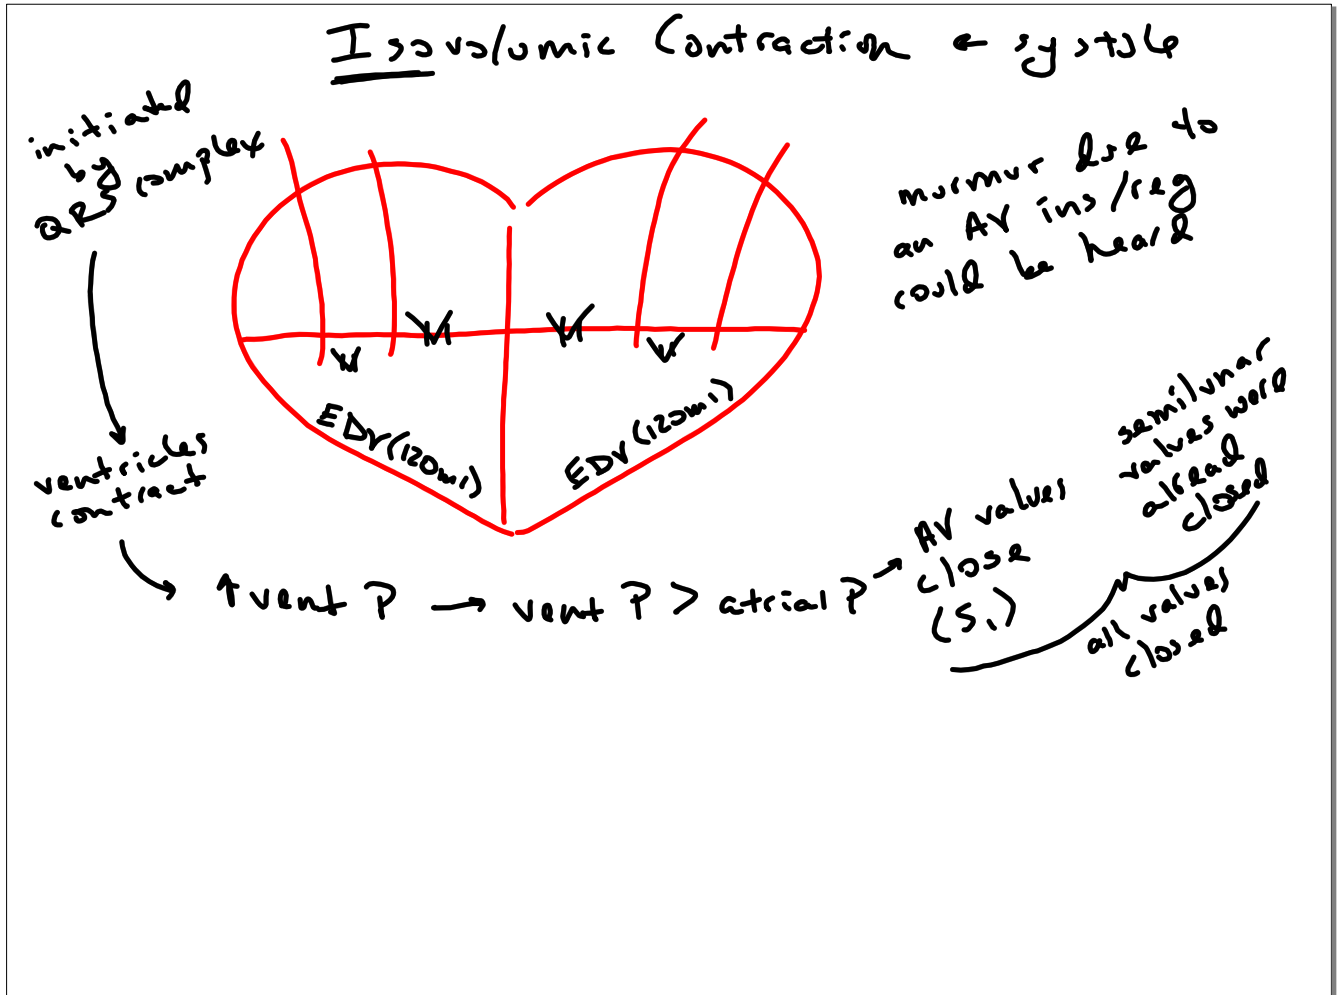 Isovolumic Contraction ← systole
initiated
by
QRS complex
murmur due to
an AV ins/reg
could be heard
EDV(120ml)
EDV(120ml)
ventricles
contract
↑ vent P → vent P > atrial P →
AV valves
close
(S1)
semilunar
valves were
alread
closed
all valves
closed